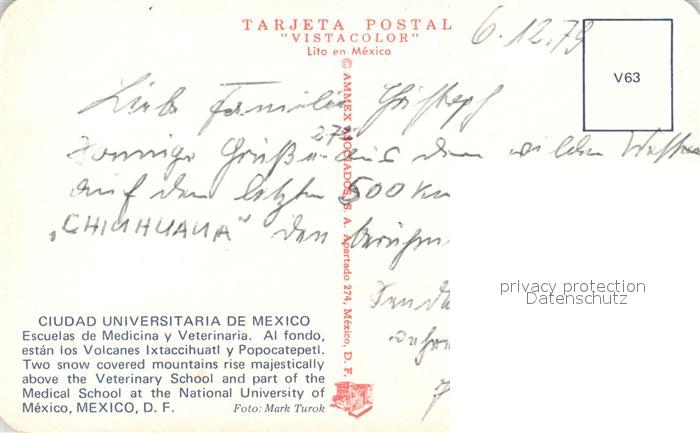 TARJETA POSTAL
"VISTACOLOR"
Lito en México
6.12.79
V63
© AMMEX ASOCIADOS, S. A. Apartado 274, México, D. F.
Liebe Familie
27°
sonnige Grüße aus dem wilden Westen
auf den letzten 500 km
"CHIHUAHUA" den
privacy protection
Datenschutz
CIUDAD UNIVERSITARIA DE MEXICO
Escuelas de Medicina y Veterinaria. Al fondo,
están los Volcanes Ixtaccihuatl y Popocatepetl.
Two snow covered mountains rise majestically
above the Veterinary School and part of the
Medical School at the National University of
México, MEXICO, D. F.
Foto: Mark Turok